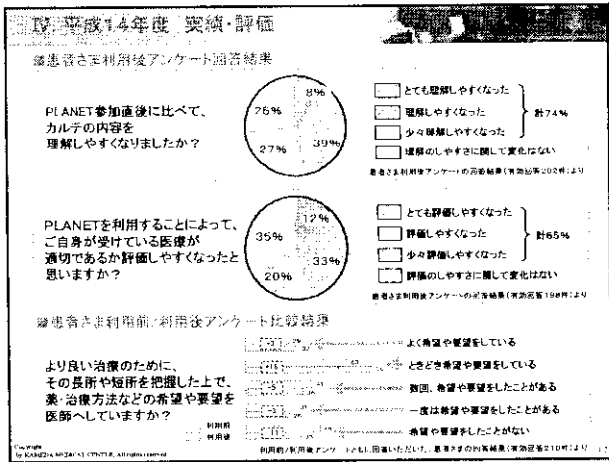 Ⅳ. 平成14年度 実績・評価
患者さま利用後アンケート回答結果
PLANET参加直後に比べて、
カルテの内容を
理解しやすくなりましたか?
8%
39%
27%
26%
とても理解しやすくなった
理解しやすくなった
少々理解しやすくなった
理解のしやすさに関して変化はない
計74%
患者さま利用後アンケートの回答結果(有効回答202件)より
PLANETを利用することによって、
ご自身が受けている医療が
適切であるか評価しやすくなったと
思いますか?
12%
33%
20%
35%
とても評価しやすくなった
評価しやすくなった
少々評価しやすくなった
評価のしやすさに関して変化はない
計65%
患者さま利用後アンケートの回答結果(有効回答198件)より
患者さま利用前/利用後アンケート比較結果
より良い治療のために、
その長所や短所を把握した上で、
薬・治療方法などの希望や要望を
医師へしていますか?
よく希望や要望をしている
ときどき希望や要望をしている
数回、希望や要望をしたことがある
一度は希望や要望をしたことがある
希望や要望をしたことがない
利用前
利用後
利用前/利用後アンケートともに回答いただいた、患者さまの回答結果(有効回答210件)より
Copyright
by KAMEDA MEDICAL CENTER, All rights reserved